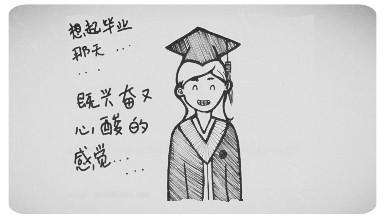 想起毕业
那天 ...
...
既兴奋又
心酸的
感觉...
...